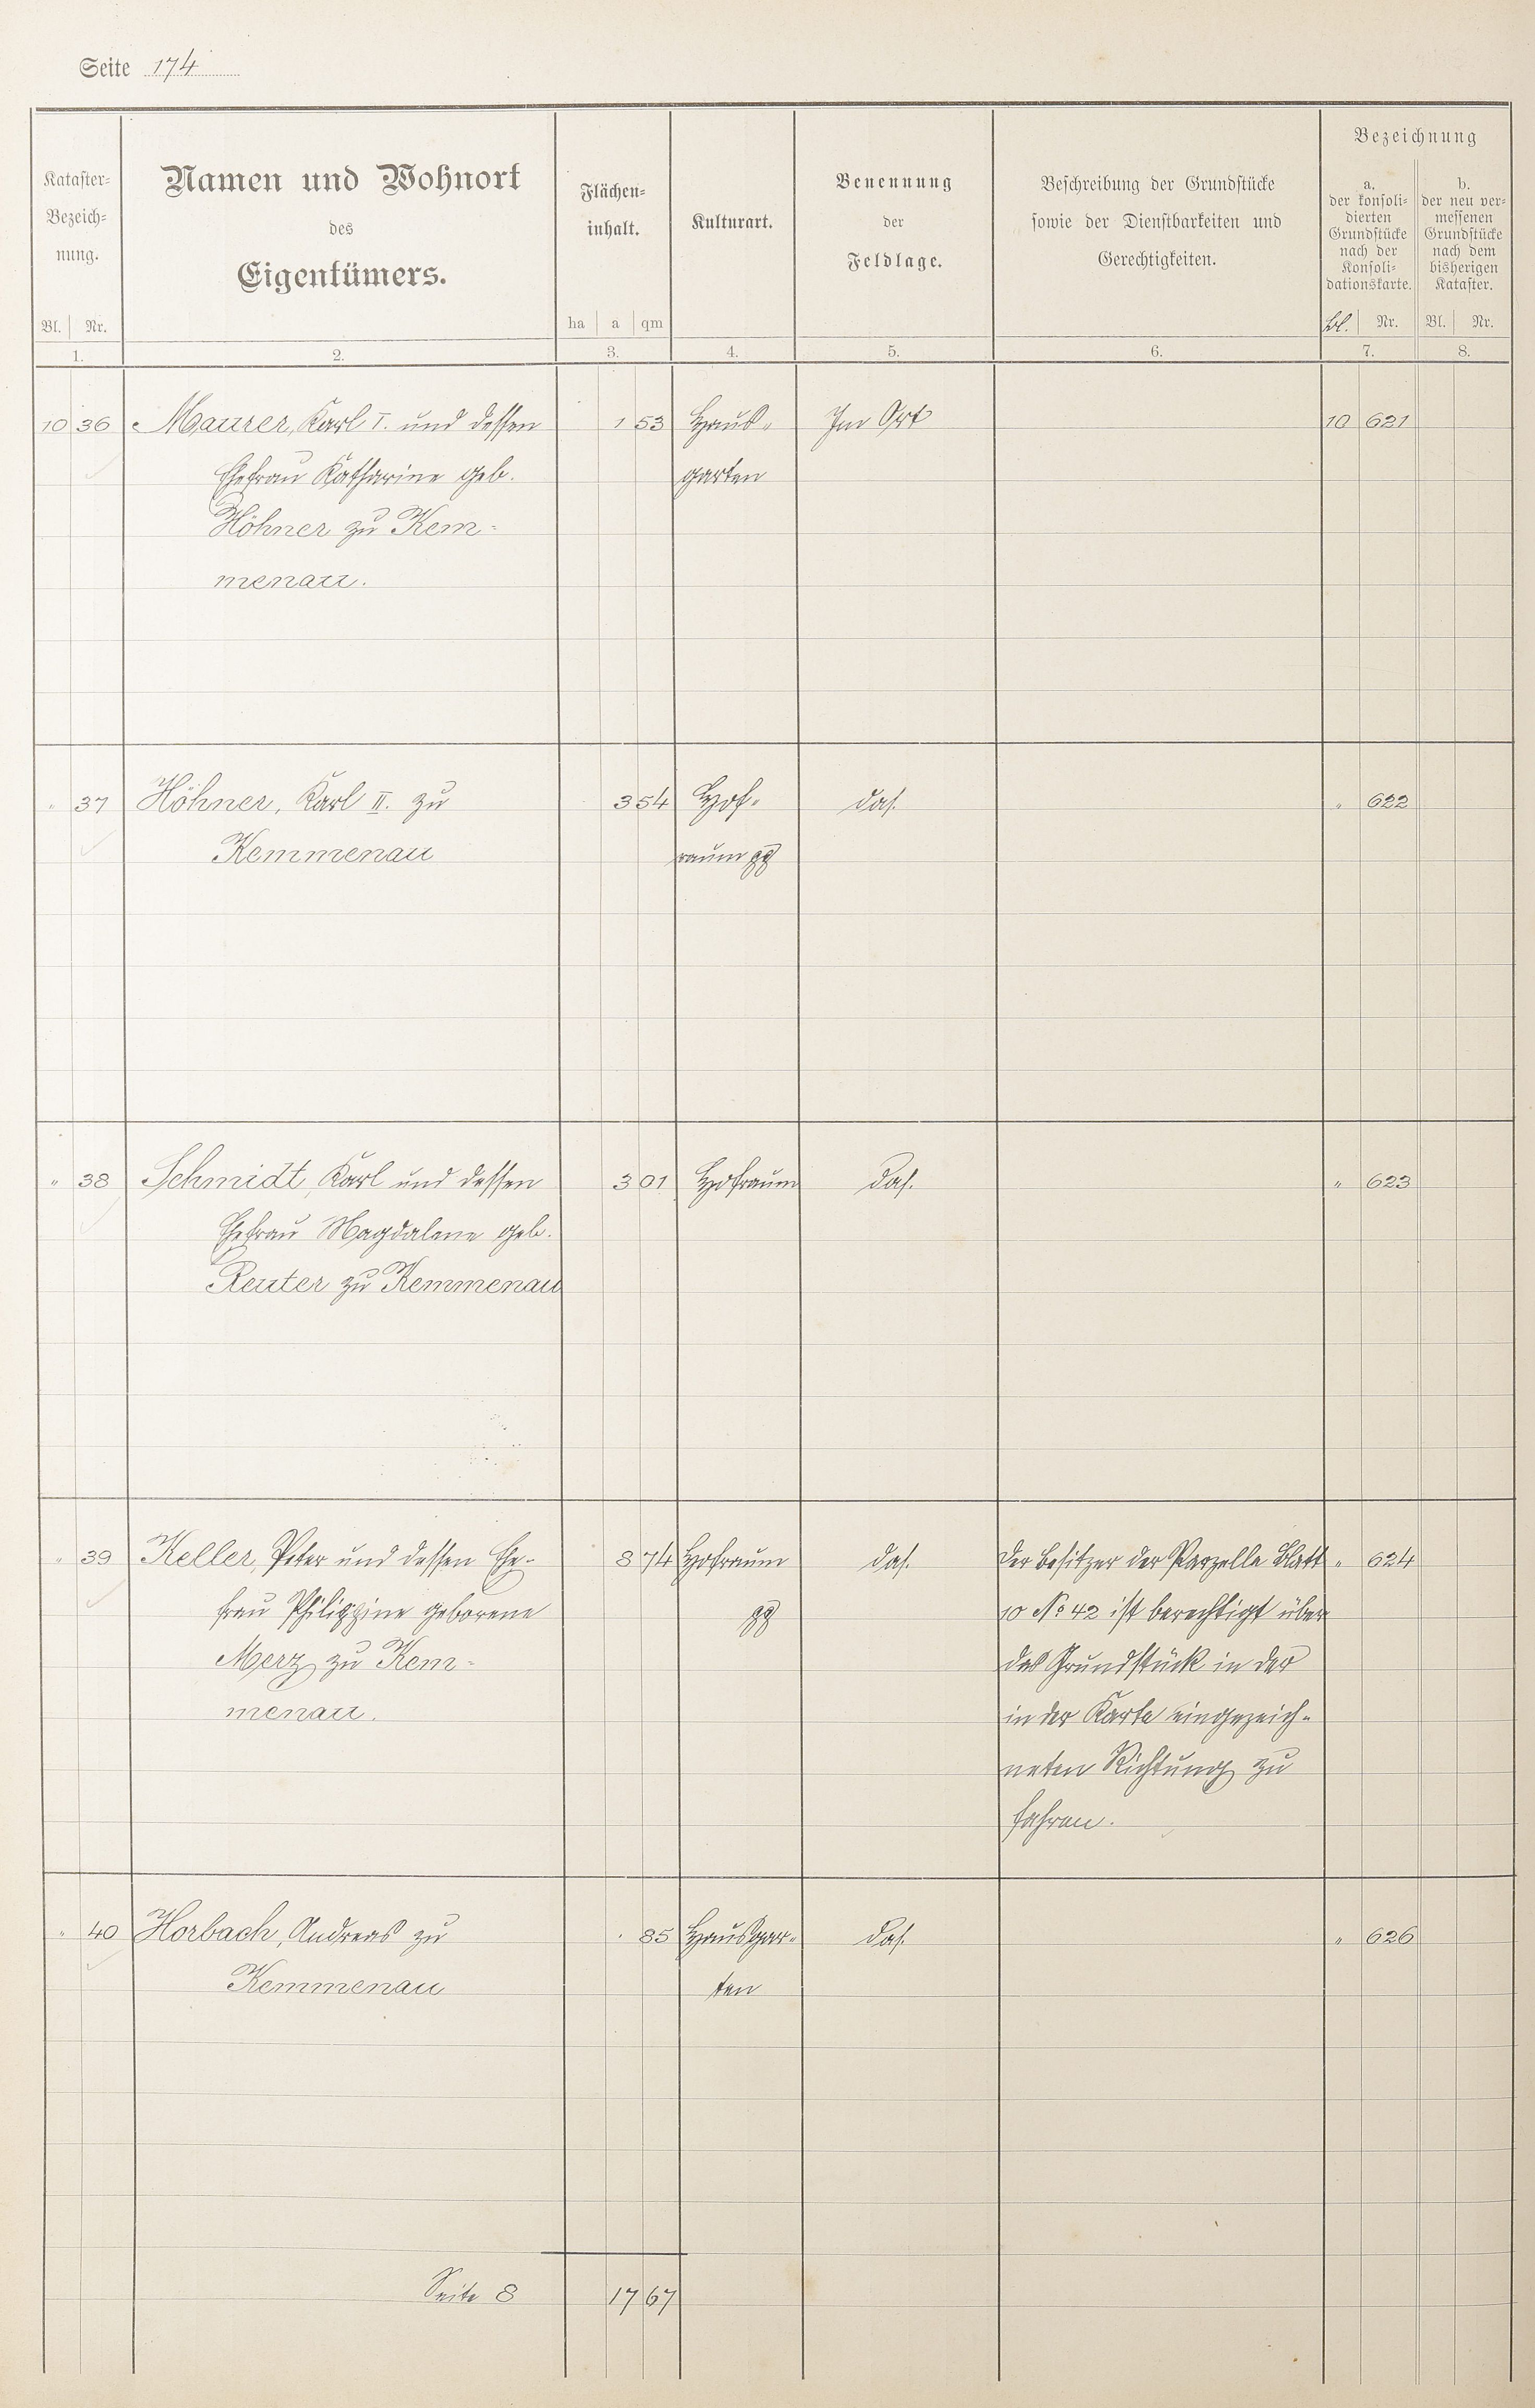 Seite 174
Kataster-
Bezeich-
nung.
Bl. Nr.
1.
Namen und Wohnort
des
Eigentümers.
2.
Flächen-
inhalt.
ha a qm
3.
Kulturart.
4.
Benennung
der
Feldlage.
5.
Beschreibung der Grundstücke
sowie der Dienstbarkeiten und
Gerechtigkeiten.
6.
Bezeichnung
a.
der konsoli-
dierten
Grundstücke
nach der
Konsoli-
dationskarte.
Bl. Nr.
7.
b.
der neu ver-
messenen
Grundstücke
nach dem
bisherigen
Kataster.
Bl. Nr.
8.
10 36 Maurer, Karl I. und dessen 1 53 Haus- Im Ort 10 621
Ehefrau Katharine geb. garten
Höhner zu Kem-
menau.
" 37 Höhner, Karl II. zu 3 54 Hof- das. " 622
Kemmenau raum gg
" 38 Schmidt, Karl und dessen 3 01 Hofraum das. " 623
Ehefrau Magdalene geb.
Reuter zu Kemmenau
" 39 Keller, Peter und dessen Ehe- 8 74 Hofraum das. Der Besitzer der Parzelle Blatt " 624
frau Philippine geborene gg 10 No 42 ist berechtigt über
Merz zu Kem- das Grundstück in der
menau. in der Karte eingezeich-
neten Richtung zu
fahren.
" 40 Horbach, Andreas zu . 85 Hausgar- das. " 626
Kemmenau ten
Seite 8 17 67